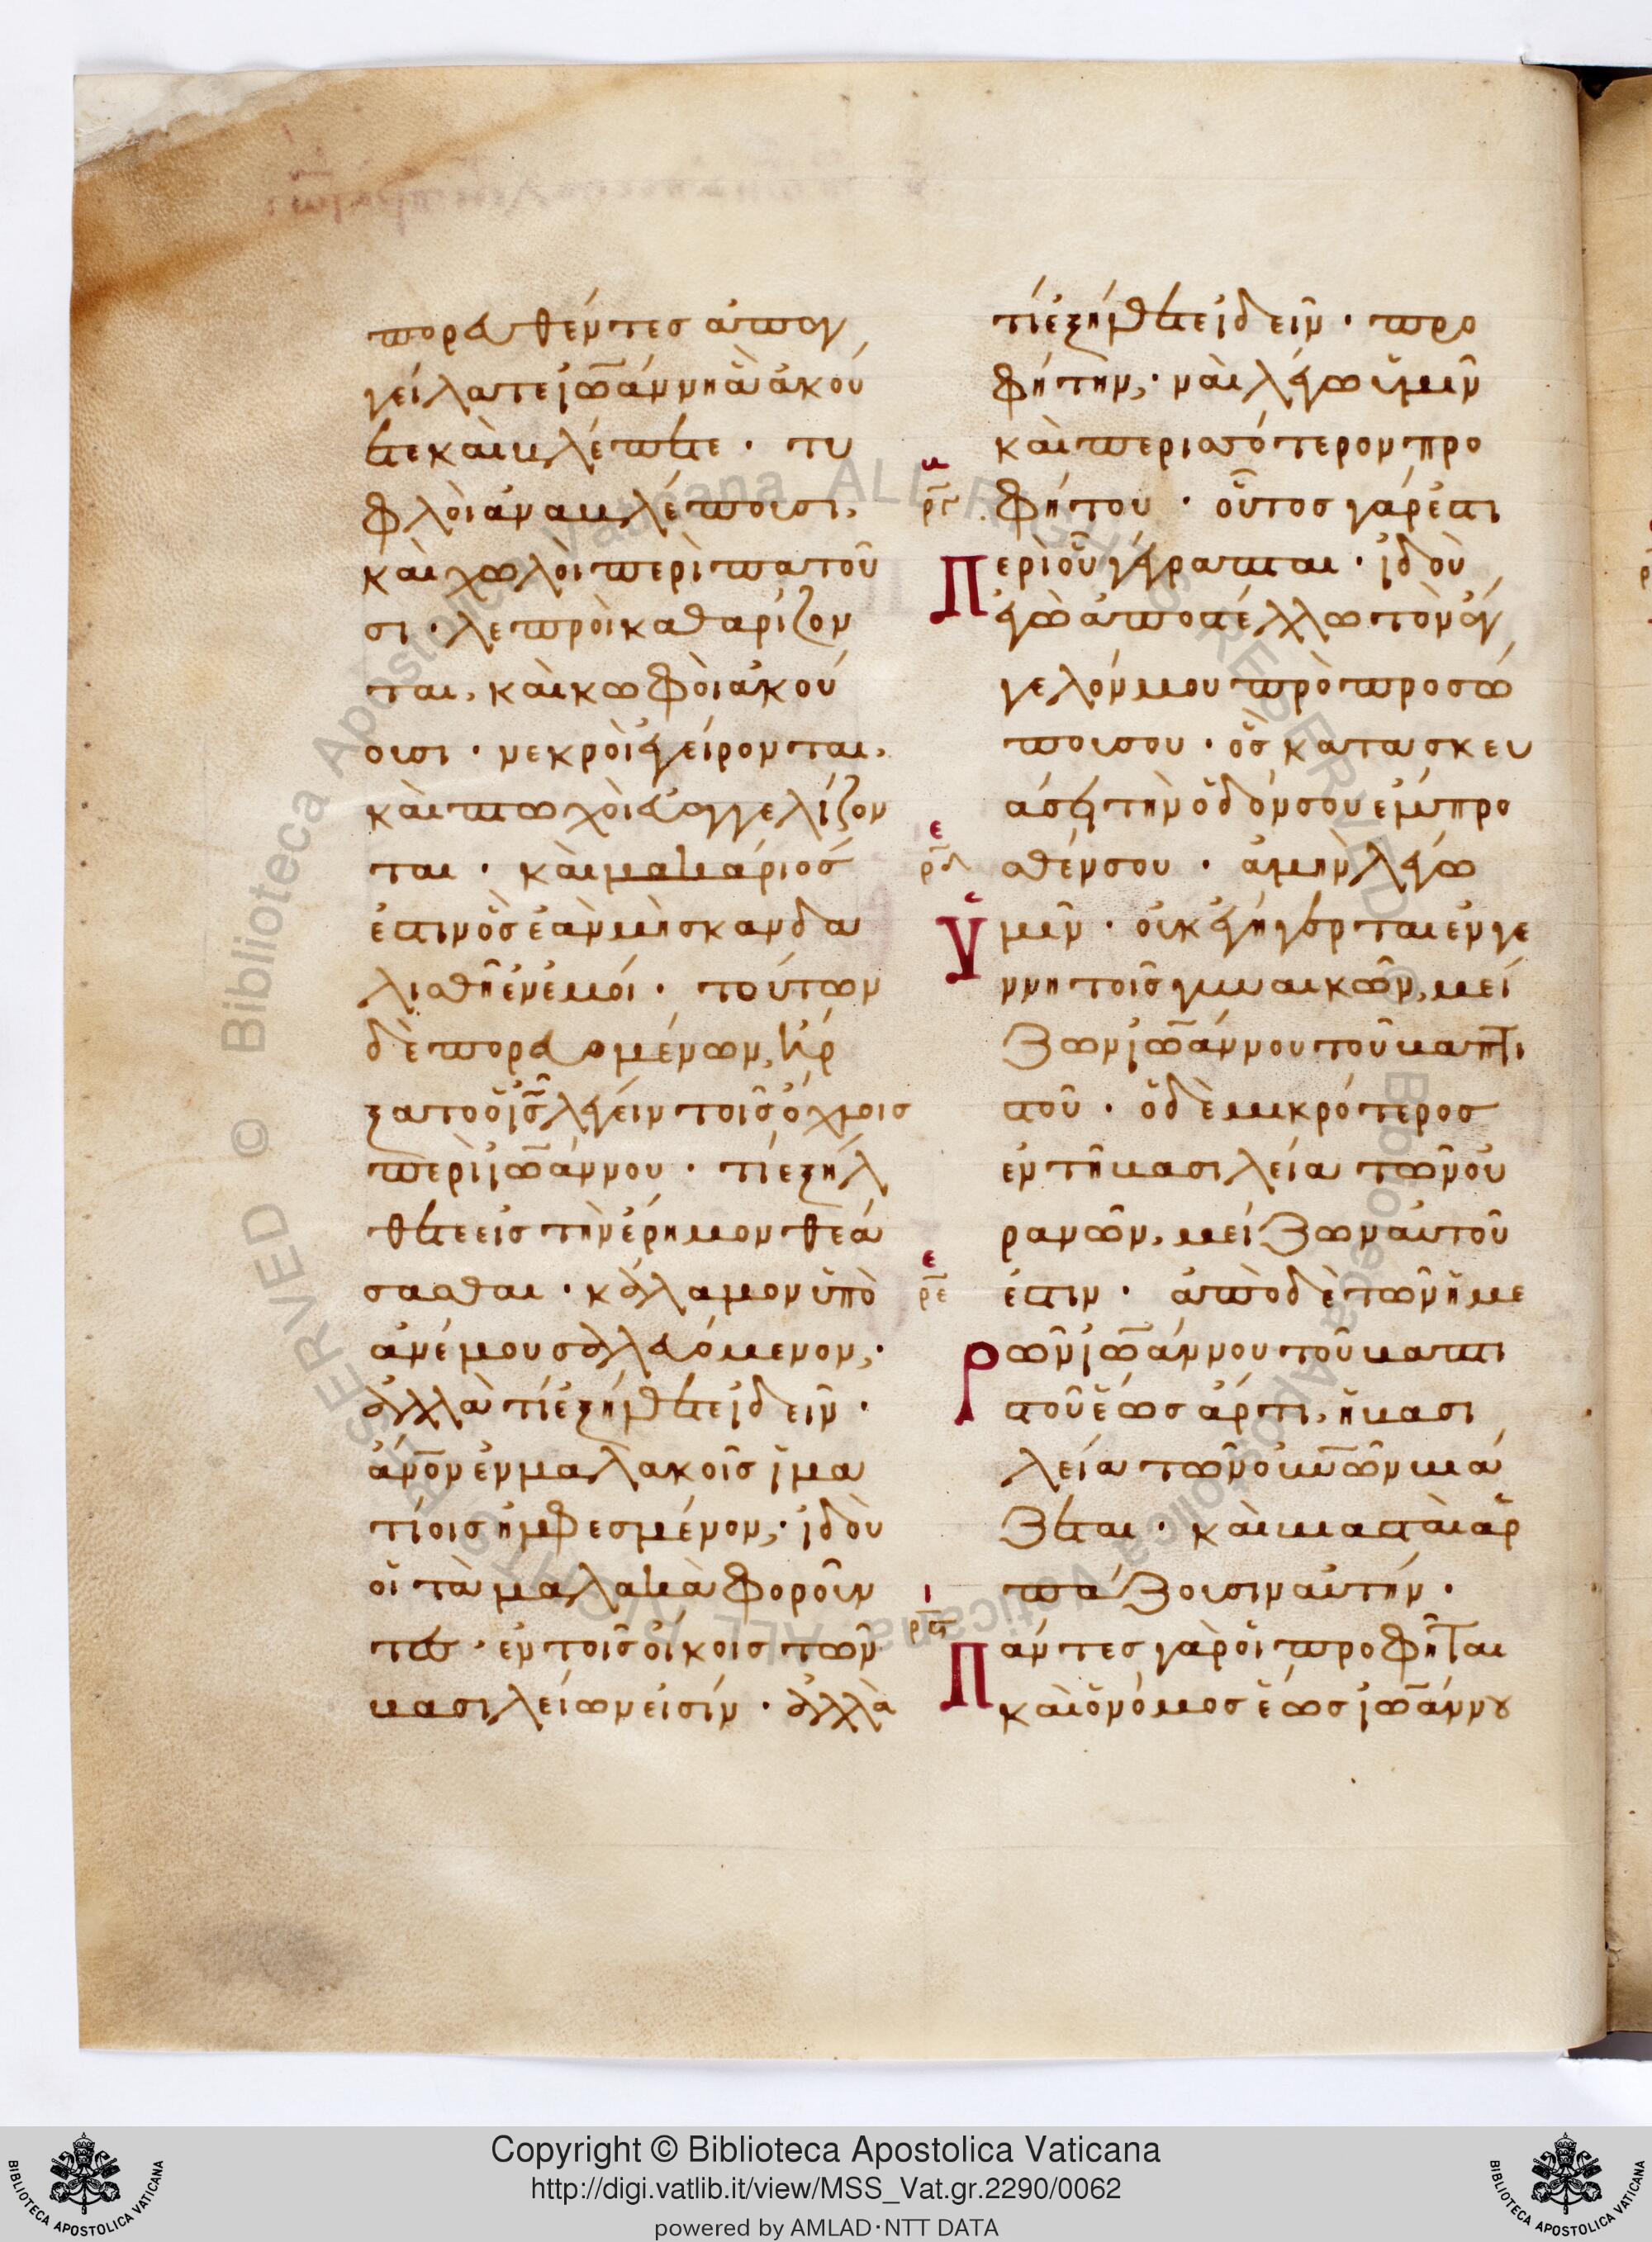 πορευθέντες ἀπαγ
γείλατε ἰωάννη ἃ ἀκού
ετε καὶ βλέπετε · τυ
φλοὶ ἀναβλέπουσι,
καὶ χωλοὶ περιπατοῦ
σι · λεπροὶ καθαρίζον
ται, καὶ κωφοὶ ἀκού
ουσι · νεκροὶ ἐγείρονται,
καὶ πτωχοὶ εὐαγγελίζον
ται · καὶ μακάριός
ἐστιν ὃς ἐὰν μὴ σκανδα
λισθῆ ἐν ἐμοί · τούτων
δὲ πορευομένων, ἤρ
ξατο ὁ ἰς λέγειν τοῖς ὄχλοις
περὶ ἰωάννου · τί ἐξήλ
θετε εἰς τὴν ἔρημον θεά
σασθαι · κάλαμον ὑπὸ
ἀνέμου σαλευόμενον, ·
ἀλλὰ τί ἐξήλθετε ἰδεῖν ·
ἄνον ἐν μαλακοῖς ἱμα
τίοις ἠμφιεσμένον, · ἰδοὺ
οἱ τὰ μαλακὰ φοροῦν
τες · ἐν τοῖς οἴκοις τῶν
βασιλείων εἰσίν · ἀλλὰ
τί ἐξήλθετε ἰδεῖν · προ
φήτην, · ναὶ λέγω ὑμῖν
καὶ περισσότερον προ
φήτου · οὗτος γάρ ἐστι
περὶ οὗ γέγραπται · ἰδοὺ
ἐγὼ ἀποστέλλω τὸν ἄγ
γελόν μου πρὸ προσώ
που σου · ὃς κατασκευ
άσει τὴν ὁδόν σου ἔμπρο
σθέν σου · ἀμὴν λέγω
ὑμῖν · οὐκ ἐγήγερται ἐν γε
ννητοῖς γυναικῶν, μεί
ζων ἰωάννου τοῦ βαπτι
στοῦ · ὁ δὲ μικρότερος
ἐν τῆ βασιλεία τῶν οὐ
ρανῶν, μείζων αὐτοῦ
ἐστιν · ἀπὸ δὲ τῶν ἡμε
ρῶν ἰωάννου τοῦ βαπτι
στοῦ ἕως ἄρτι, ἡ βασι
λεία τῶν οὐνῶν βιά
ζεται · καὶ βιασταὶ ἁρ
πάζουσιν αὐτήν ·
Πάντες γὰρ οἱ προφῆται
καὶ ὁ νόμος ἕως ἰωάννου
Copyright © Biblioteca Apostolica Vaticana
http://digi.vatlib.it/view/MSS_Vat.gr.2290/0062
powered by AMLAD·NTT DATA